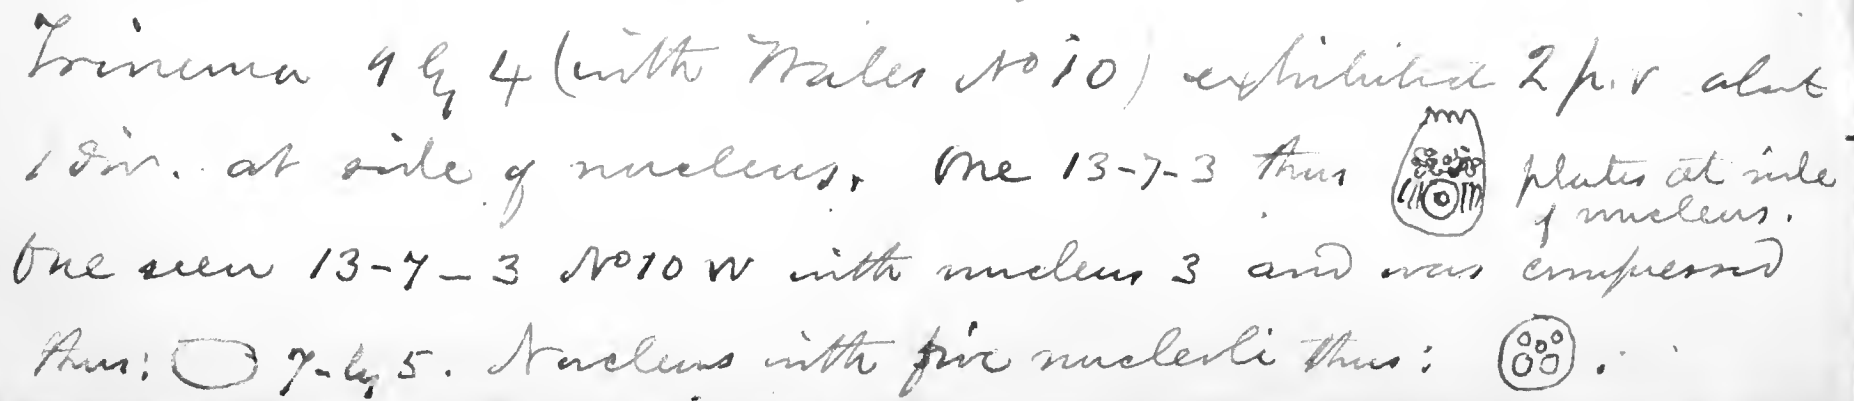 Trinema 9 by 4 (with Wales No 10) exhibited 2 p.v about
1 Div. at side of nucleus. One 13-7-3 thus plates at side
of nucleus.
One seen 13-7-3 No 10 W with nucleus 3 and was compressed
thus: 7-by 5. Nucleus with five nucleoli thus: .